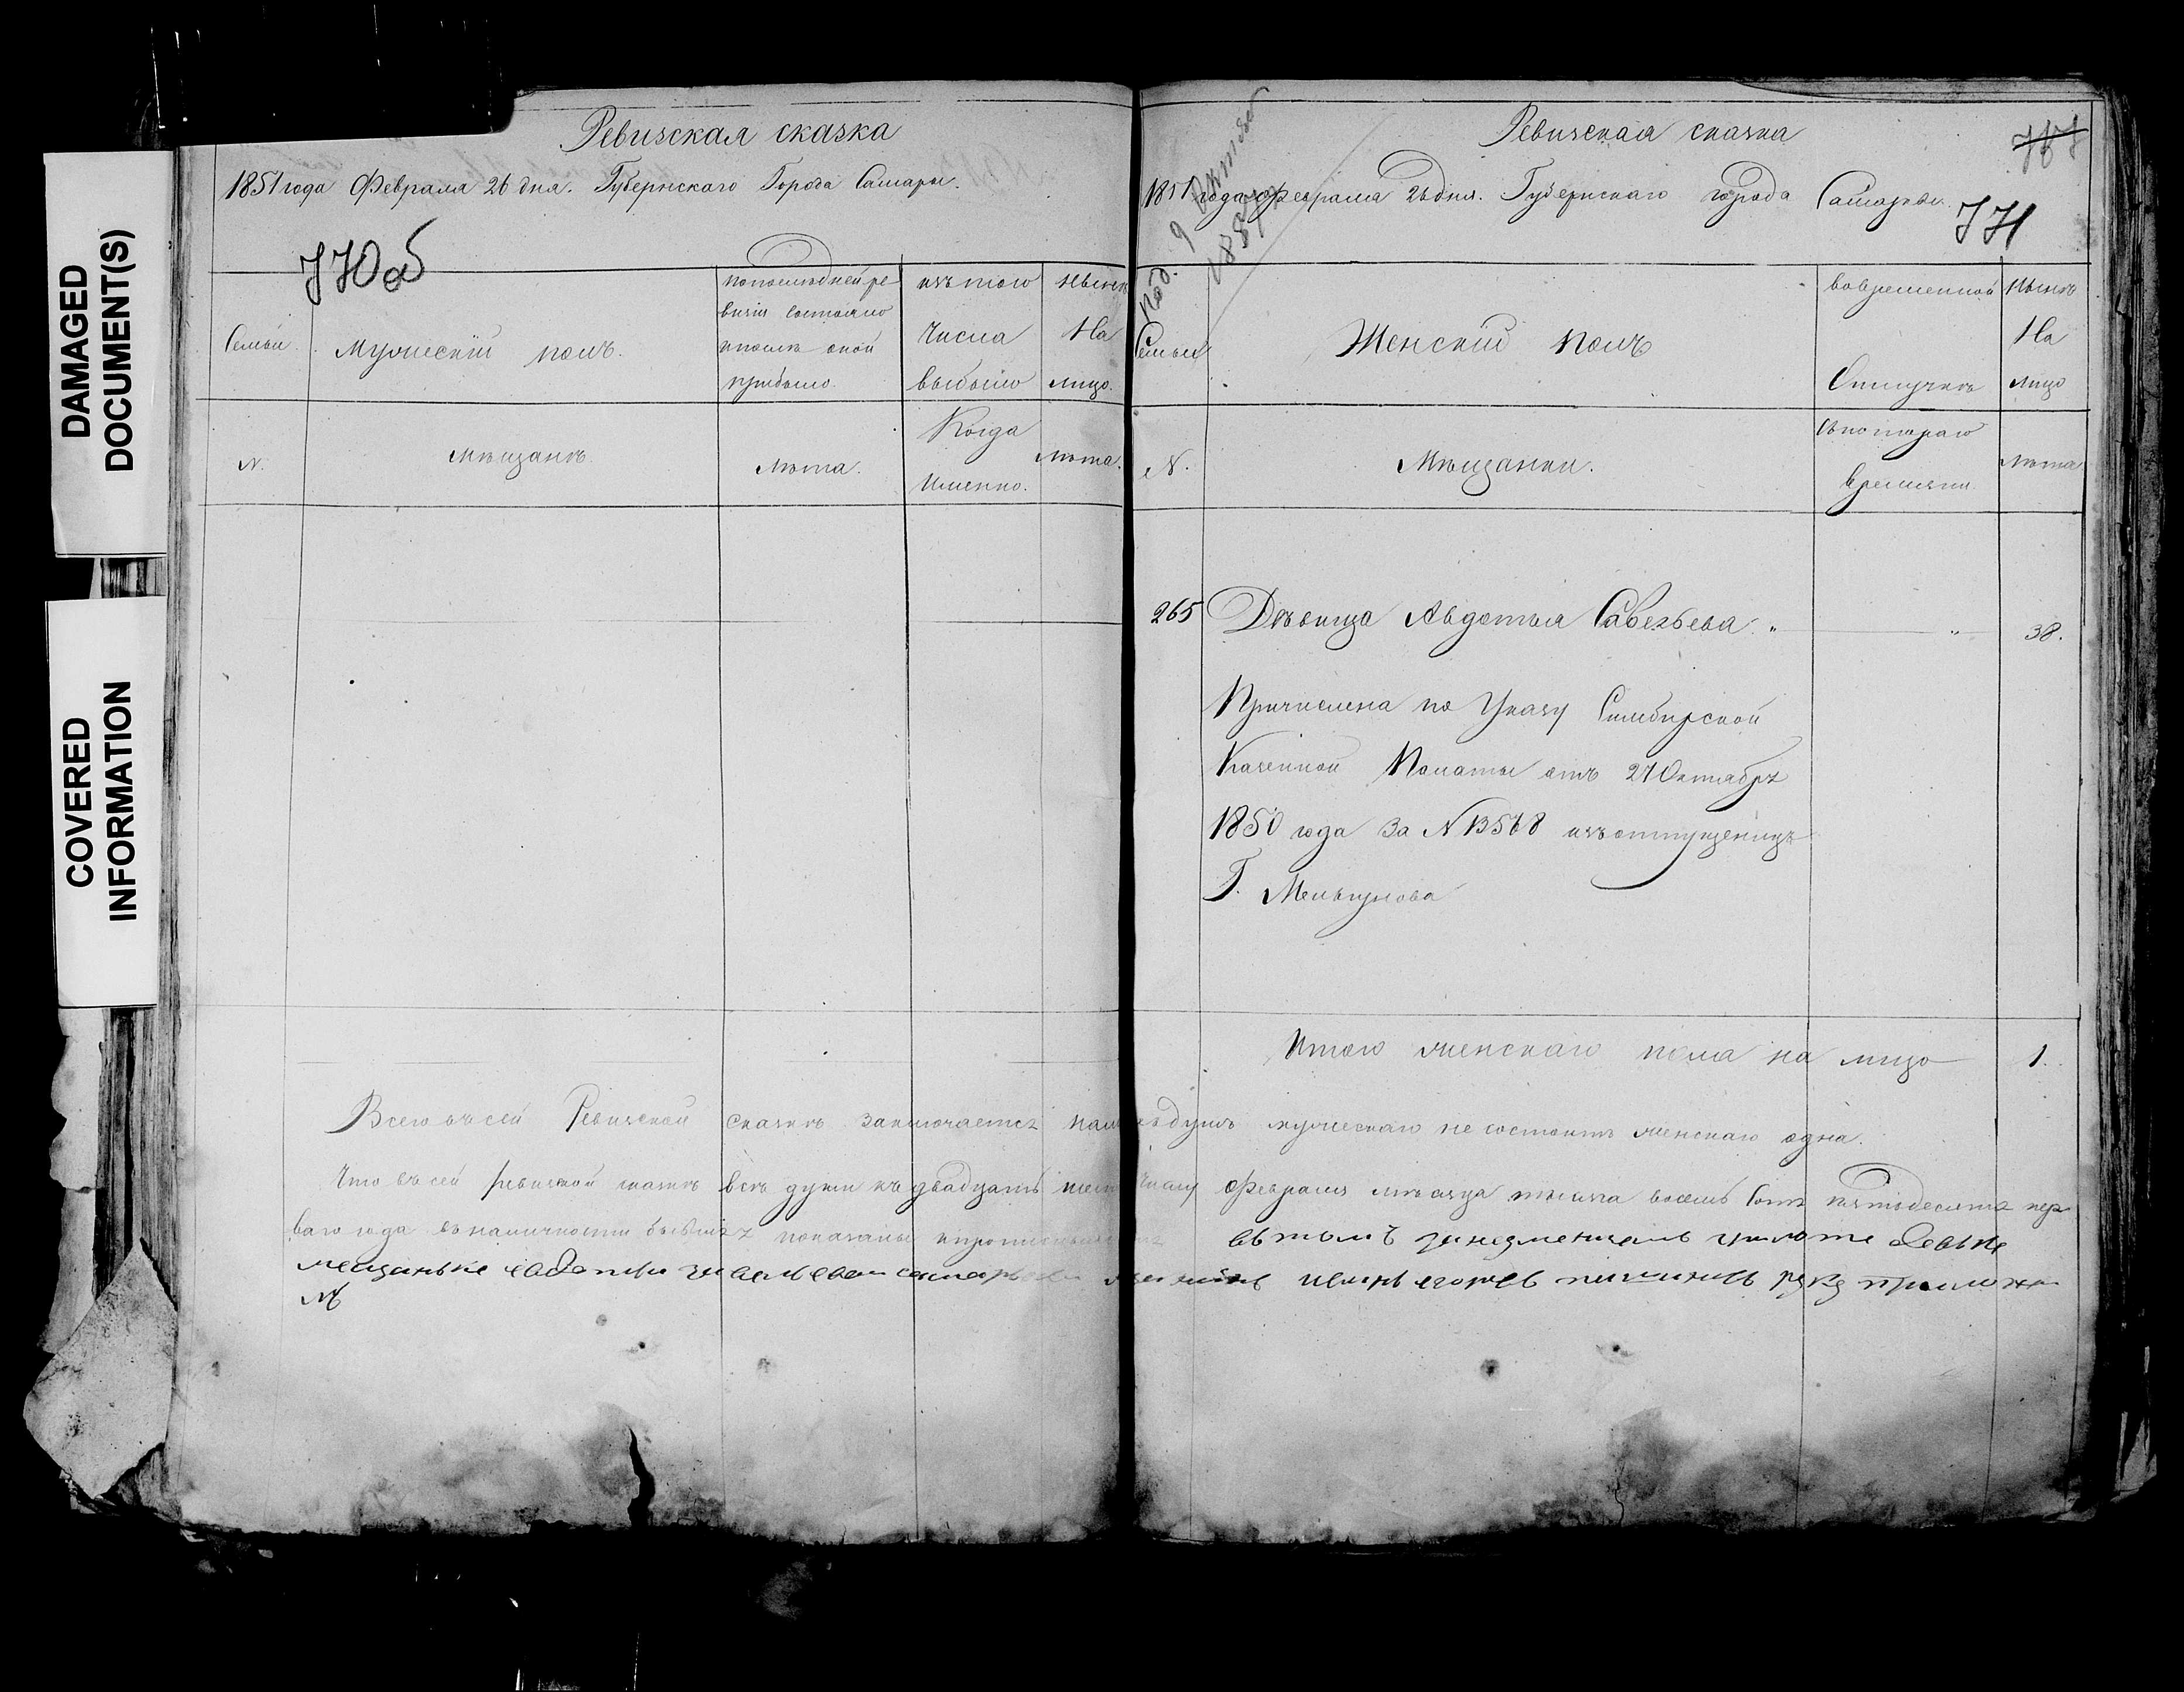 DAMAGED
DOCUMENT(S)
COVERED
INFORMATION
Ревизская сказка
1851 года Февраля 26 дня. Губернскаго Города Самары.
770 об
Семьи.
Мужескій полъ.
по последней ре
визіи состояло
и после оной
прибыло.
изъ того
Числа
выбыло
Ныне
На
лицо.
N.
Мѣщанъ.
лѣта.
Когда
Именно.
лѣта.
Ревизская сказка
1851 года Февраля 26 дня. Губернскаго города Самары.
771
9 Октяб
Семьи
Женскій полъ
во временной
Отлучкѣ
Нынѣ
На
лицо
N.
Мѣщанки.
съ котораго
времяни
лѣта
265 Дѣвица Авдотья Савельева. „ „ 38.
Причислена по Указу Симбирской
Казенной Палаты отъ 27 Октября
1850 года За N 13568 изъ отпущеницъ
Г. Мельгунова
Итого женскаго пола на лицо 1.
Всего въ сей Ревизской сказкѣ заключается душъ мужескаго не состоитъ женскаго одна.
Что въ сей ревизской сказкѣ всѣ души къ двадцать шестому Февраля мѣсяца тысяча восемь Сотъ пятьдесята пер
ваго года въ наличности бывшія показаны
руку приложи
лъ